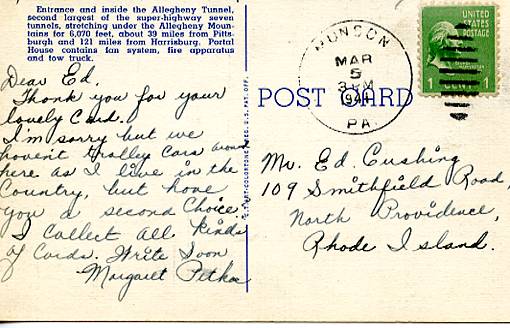 Entrance and inside the Allegheny Tunnel,
second largest of the super-highway seven
tunnels, stretching under the Allegheny Moun-
tains for 6,070 feet, about 39 miles from Pitts-
burgh and 121 miles from Harrisburg. Portal
House contains fan system, fire apparatus
and tow truck.
Dear Ed.
Thank you for your
lovely Card.
I'm sorry but we
haven't trolley cars around
here as I live in the
Country, but have
you a second Choice.
I Collect All kinds
of Cards. Write Soon
Margaret
MUNSON
MAR
5
3 PM
1941
PA.
UNITED
STATES
POSTAGE
1 CENT 1
POST CARD
Mr. Ed. Cushing
109 Smithfield Road,
North Providence,
Rhode Island.